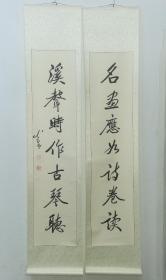 名画應如詩卷讀
溪聲時作古琴聽